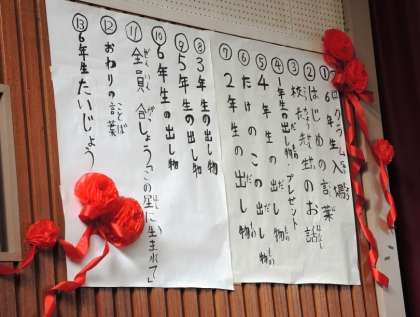 ログラム
①6年生入場
②はじめの言葉
③校長先生のお話
④1年生の出し物・プレゼント
⑤4年生の出し物
⑥たけのこの出し物
⑦2年生の出し物
⑧3年生の出し物
⑨5年生の出し物
⑩6年生の出し物
⑪全員合しょう「この星に生まれて」
⑫おわりの言葉
⑬6年生たいじょう